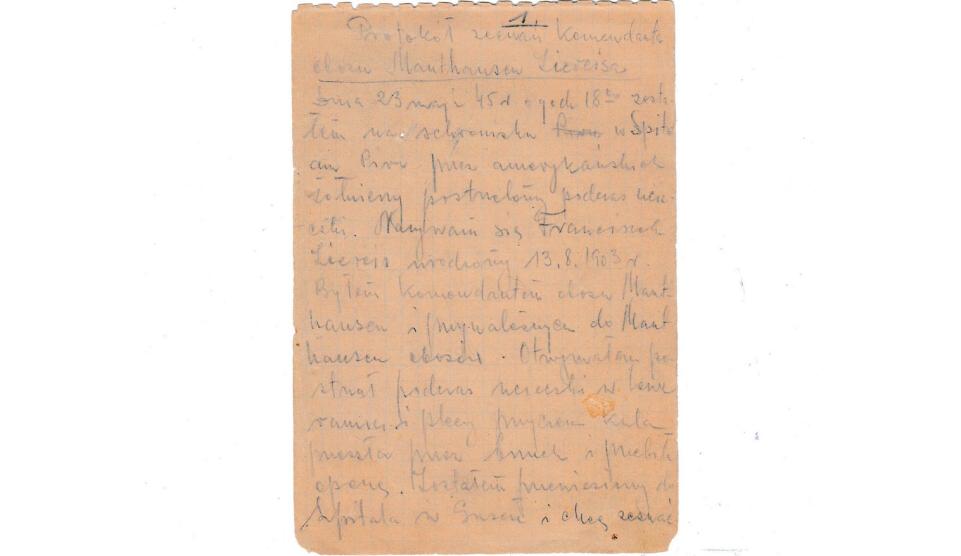 1.
Protokół zeznań Komendanta
obozu Manthausen Ziereisa
Dnia 23 maja 45 r o godz 18 zosta-
łem na schronisku w Spital
am przez amerykańskich
żołnierzy postrzelony podczas ucie-
czki. Nazywam się Franciszek
Ziereis urodzony 13.8.1903 r.
Byłem Komendantem obozu Mant-
hausen i przynależnych do Mant
hausen obozów. Otrzymałem po-
strzał podczas ucieczki w lewe
ramię i plecy przyczem kula
przeszła przez brzuch i przebiła
oponę. Zostałem przeniesiony do
Szpitala w Gusen i chcę zeznać